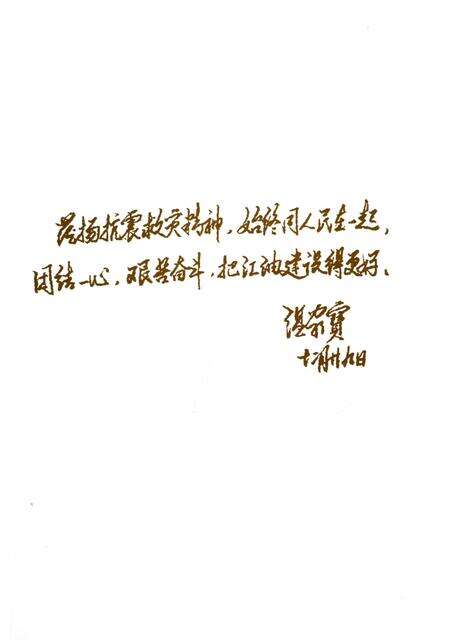 发扬抗震救灾精神，始终同人民在一起，
团结一心，艰苦奋斗，把江油建设得更好。
温家寶
月廿九日